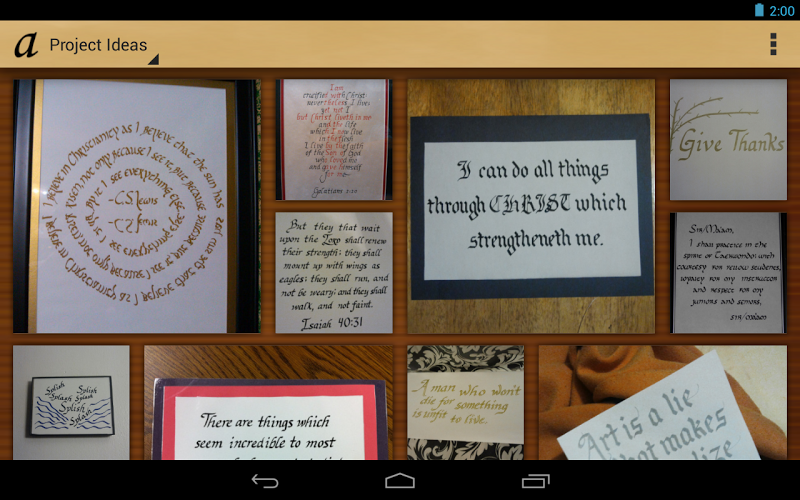 2:00
a Project Ideas
I believe in Christianity as I believe that the sun has
risen, not only because I see it, but because
by it I see everything else.
-C.S. Lewis
I am
crucified with Christ:
nevertheless I live;
yet not I
but Christ liveth in me
and the life
which I now live
in the flesh
I live by the faith
of the Son of God
who loved me
and gave himself
for me.
Galatians 2:20
I can do all things
through CHRIST which
strengtheneth me.
Give Thanks
But they that wait
upon the Lord shall renew
their strength; they shall
mount up with wings as
eagles; they shall run, and
not be weary; and they shall
walk, and not faint.
Isaiah 40:31
Sir/Ma'am,
I shall practice in the
spirit of Taekwondo with
courtesy for fellow students,
loyalty for my instructor
and respect for my
juniors and seniors,
Sir/Ma'am
Splish
Splash
Splish
Splash
Splish
Splash
There are things which
seem incredible to most
A man who won't
die for something
is unfit to live.
Art is a lie
that makes